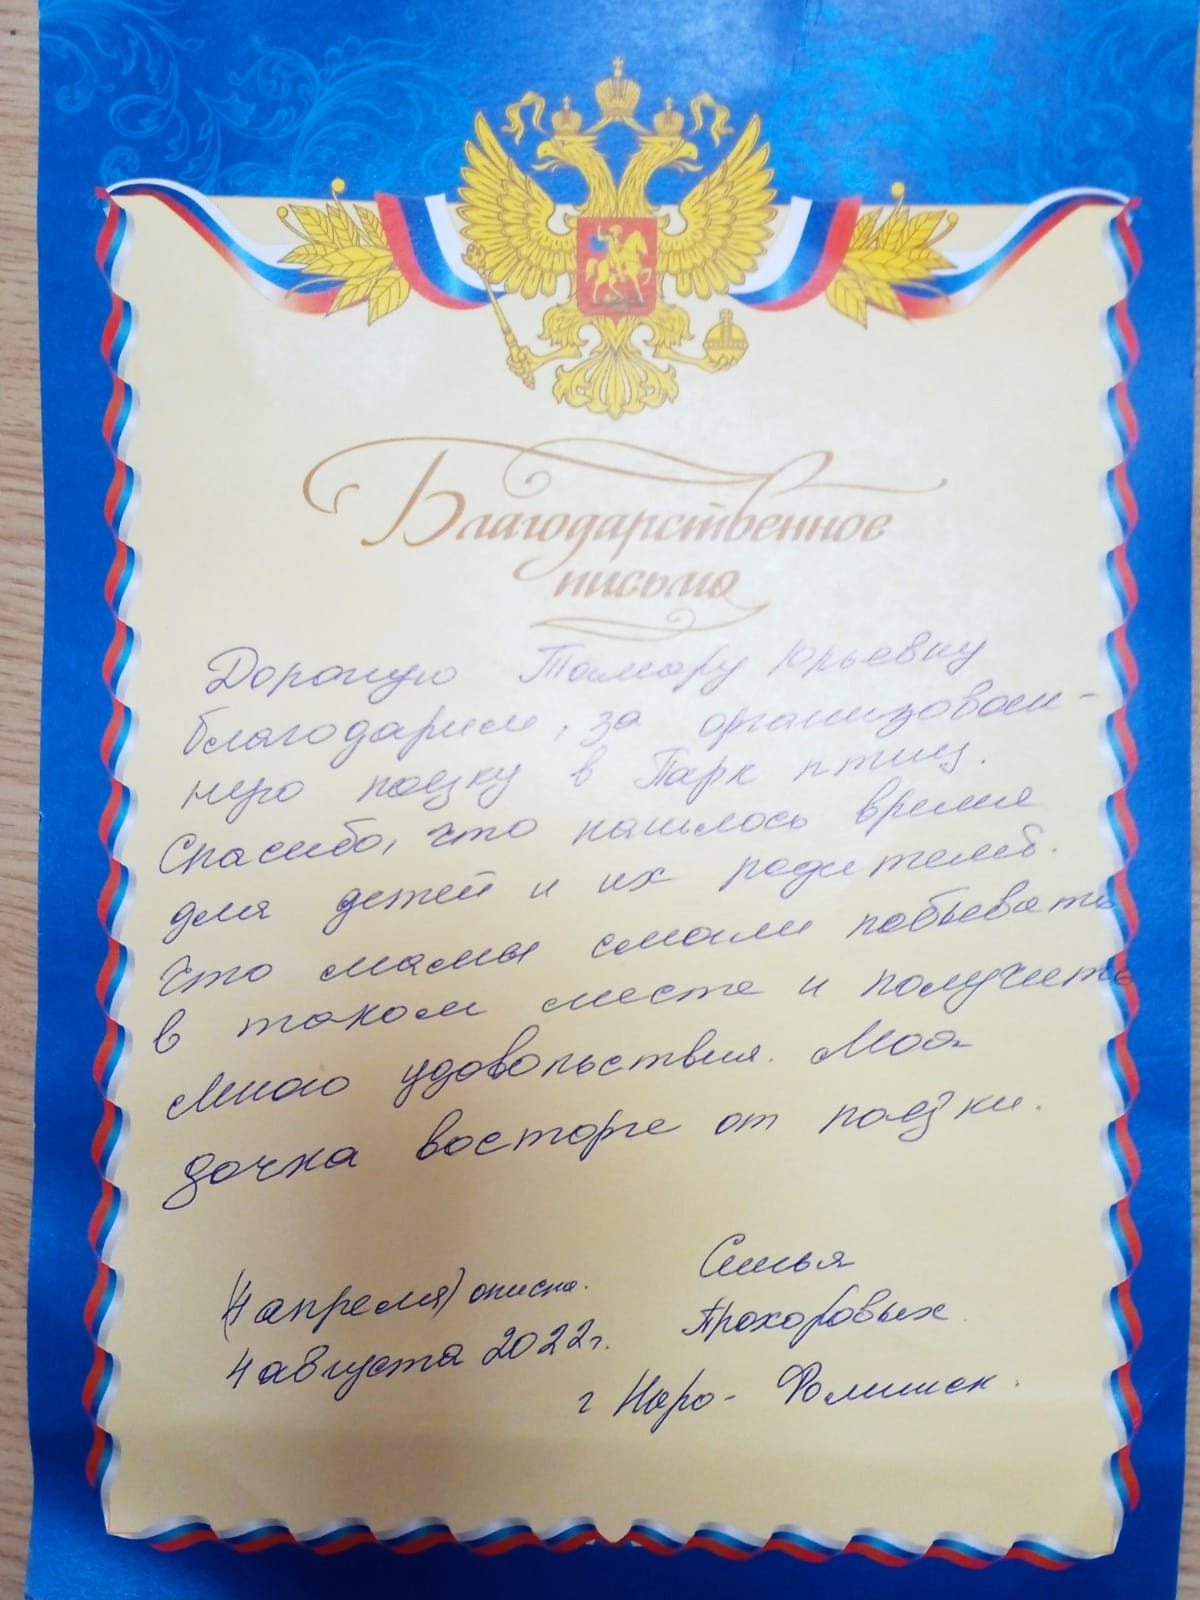 Благодарственное
письмо
Дорогую Тамару Юрьевну
благодарим, за организован-
ную поезку в Парк птиц.
Спасибо, что нашлось время
для детей и их родителей.
Что мамы смогли побывать
в таком месте и получить
много удовольствия. Моя
дочка восторге от поезки.
(4 апреля) описка.
4 августа 2022г.
Семья
Прохоровых
г Наро- Фоминск.